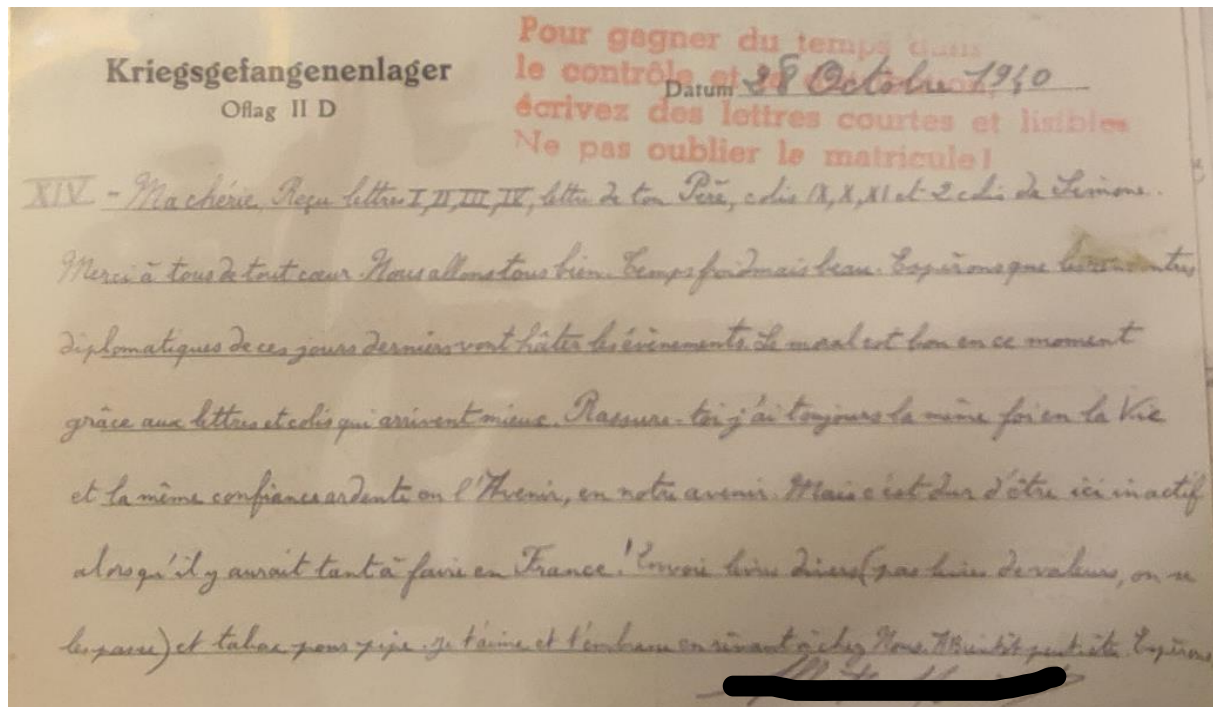 Pour gagner du temps dans
le contrôle et
écrivez des lettres courtes et lisibles
Ne pas oublier le matricule!
Kriegsgefangenenlager
Oflag II D
Datum 28 Octobre 1940
XIV - Ma chérie, Reçu lettres I, II, III, IV, lettre de ton Père, colis IX, X, XI et 2 colis de Simone.
Merci à tous de tout cœur. Nous allons tous bien. Temps froid mais beau. Espérons que les rencontres
diplomatiques de ces jours derniers vont hâter les évènements. Le moral est bon en ce moment
grâce aux lettres et colis qui arrivent mieux. Rassure-toi j'ai toujours la même foi en la Vie
et la même confiance ardente en l'Avenir, en notre avenir. Mais c'est dur d'être ici inactif
alors qu'il y aurait tant à faire en France! Envoie livres divers (pas livres de valeurs, on se
les passe) et tabac pour pipe. Je t'aime et t'embrasse en rêvant à chez Nous. A Bientôt peut-être. Espérons